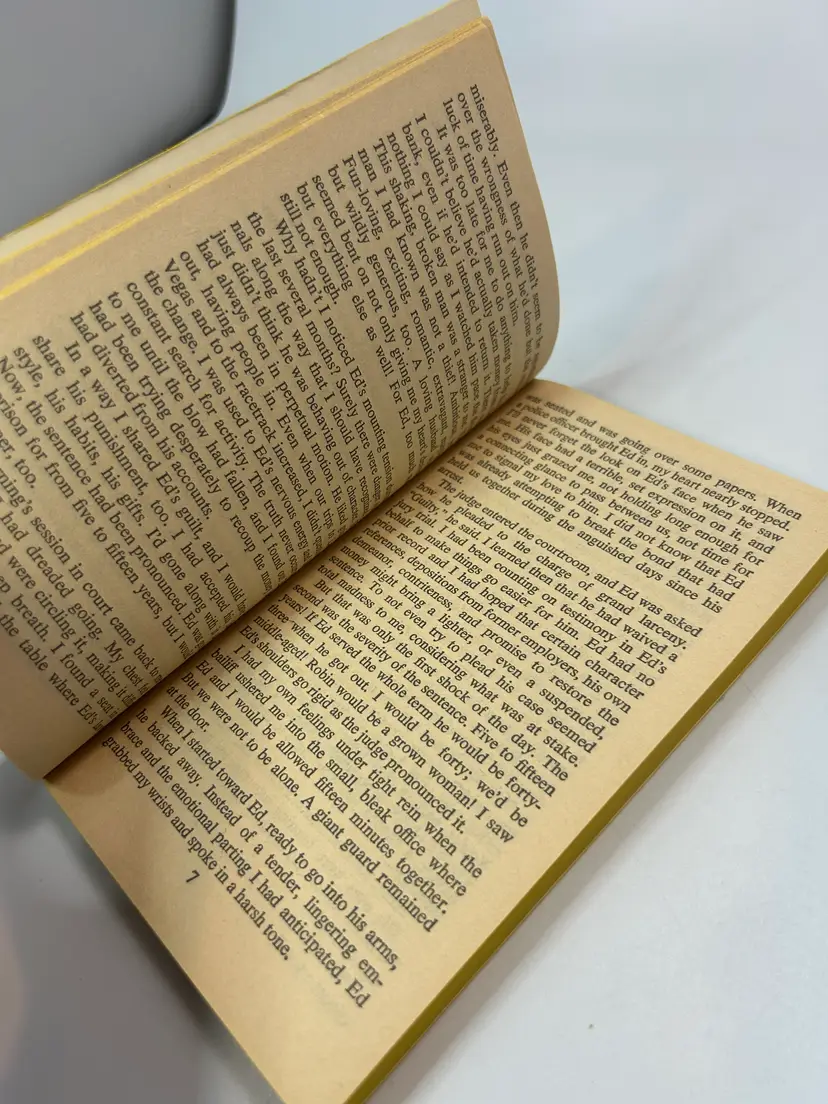 miserably. Even then he didn't seem to be
over the wrongness of what he'd done but
luck of time having run out on him.
It was too late for me to do anything to
I couldn't believe he'd actually taken money
bank, even if he'd intended to return it.
nothing I could say as I watched him
This shaking, broken man was a stranger to
man I had known was not a thief!
Fun-loving, exciting, romantic, extravagant,
but wildly generous, too. A loving
seemed bent on not only giving me my heart's
but everything else as well! For Ed, too
still not enough.
Why hadn't I noticed Ed's mounting tension
the last several months? Surely there were
nals along the way that I should have
just didn't think he was behaving out of
had always been in perpetual motion. He liked
out, having people in. Even when our trips to
Vegas and to the racetrack increased, I didn't
the change. I was used to Ed's nervous energy
constant search for activity. The truth never
to me until the blow had fallen, and I found
had been trying desperately to recoup the
had diverted from his accounts.
In a way I shared Ed's guilt, and I would
share his punishment, too. I had accepted his
style, his habits, his gifts. I'd gone along with
Now, the sentence had been pronounced Ed was
rison for from five to fifteen years, but I
er, too.
ning's session in court came back to
had dreaded going. My chest
d were circling it, making it
p breath. I found a seat
the table where Ed's
was seated and was going over some papers. When
a police officer brought Ed in, my heart nearly stopped.
I'll never forget the look on Ed's face when he saw
me. His face had a terrible, set expression on it, and
his eyes just grazed me, not holding long enough for
a connecting glance to pass between us, not time for
me to signal my love to him. I did not know that Ed
was already attempting to break the bond that had
held us together during the anguished days since his
arrest.
The judge entered the courtroom, and Ed was asked
how he pleaded to the charge of grand larceny.
"Guilty," he said. I learned then that he had waived a
jury trial. I had been counting on testimony in Ed's
behalf to make things go easier for him. Ed had no
prior record and I had hoped that certain character
references, depositions from former employers, his own
demeanor, contriteness, and promise to restore the
money might bring a lighter, or even a suspended,
sentence. To not even try to plead his case seemed
total madness to me, considering what was at stake.
But that was only the first shock of the day. The
second was the severity of the sentence. Five to fifteen
years! If Ed served the whole term he would be forty-
three when he got out. I would be forty; we'd be
middle-aged! Robin would be a grown woman! I saw
Ed's shoulders go rigid as the judge pronounced it.
I had my own feelings under tight rein when the
bailiff ushered me into the small, bleak office where
Ed and I would be allowed fifteen minutes together.
But we were not to be alone. A giant guard remained
at the door.
When I started toward Ed, ready to go into his arms,
he backed away. Instead of a tender, lingering em-
brace and the emotional parting I had anticipated, Ed
grabbed my wrists and spoke in a harsh tone.
7